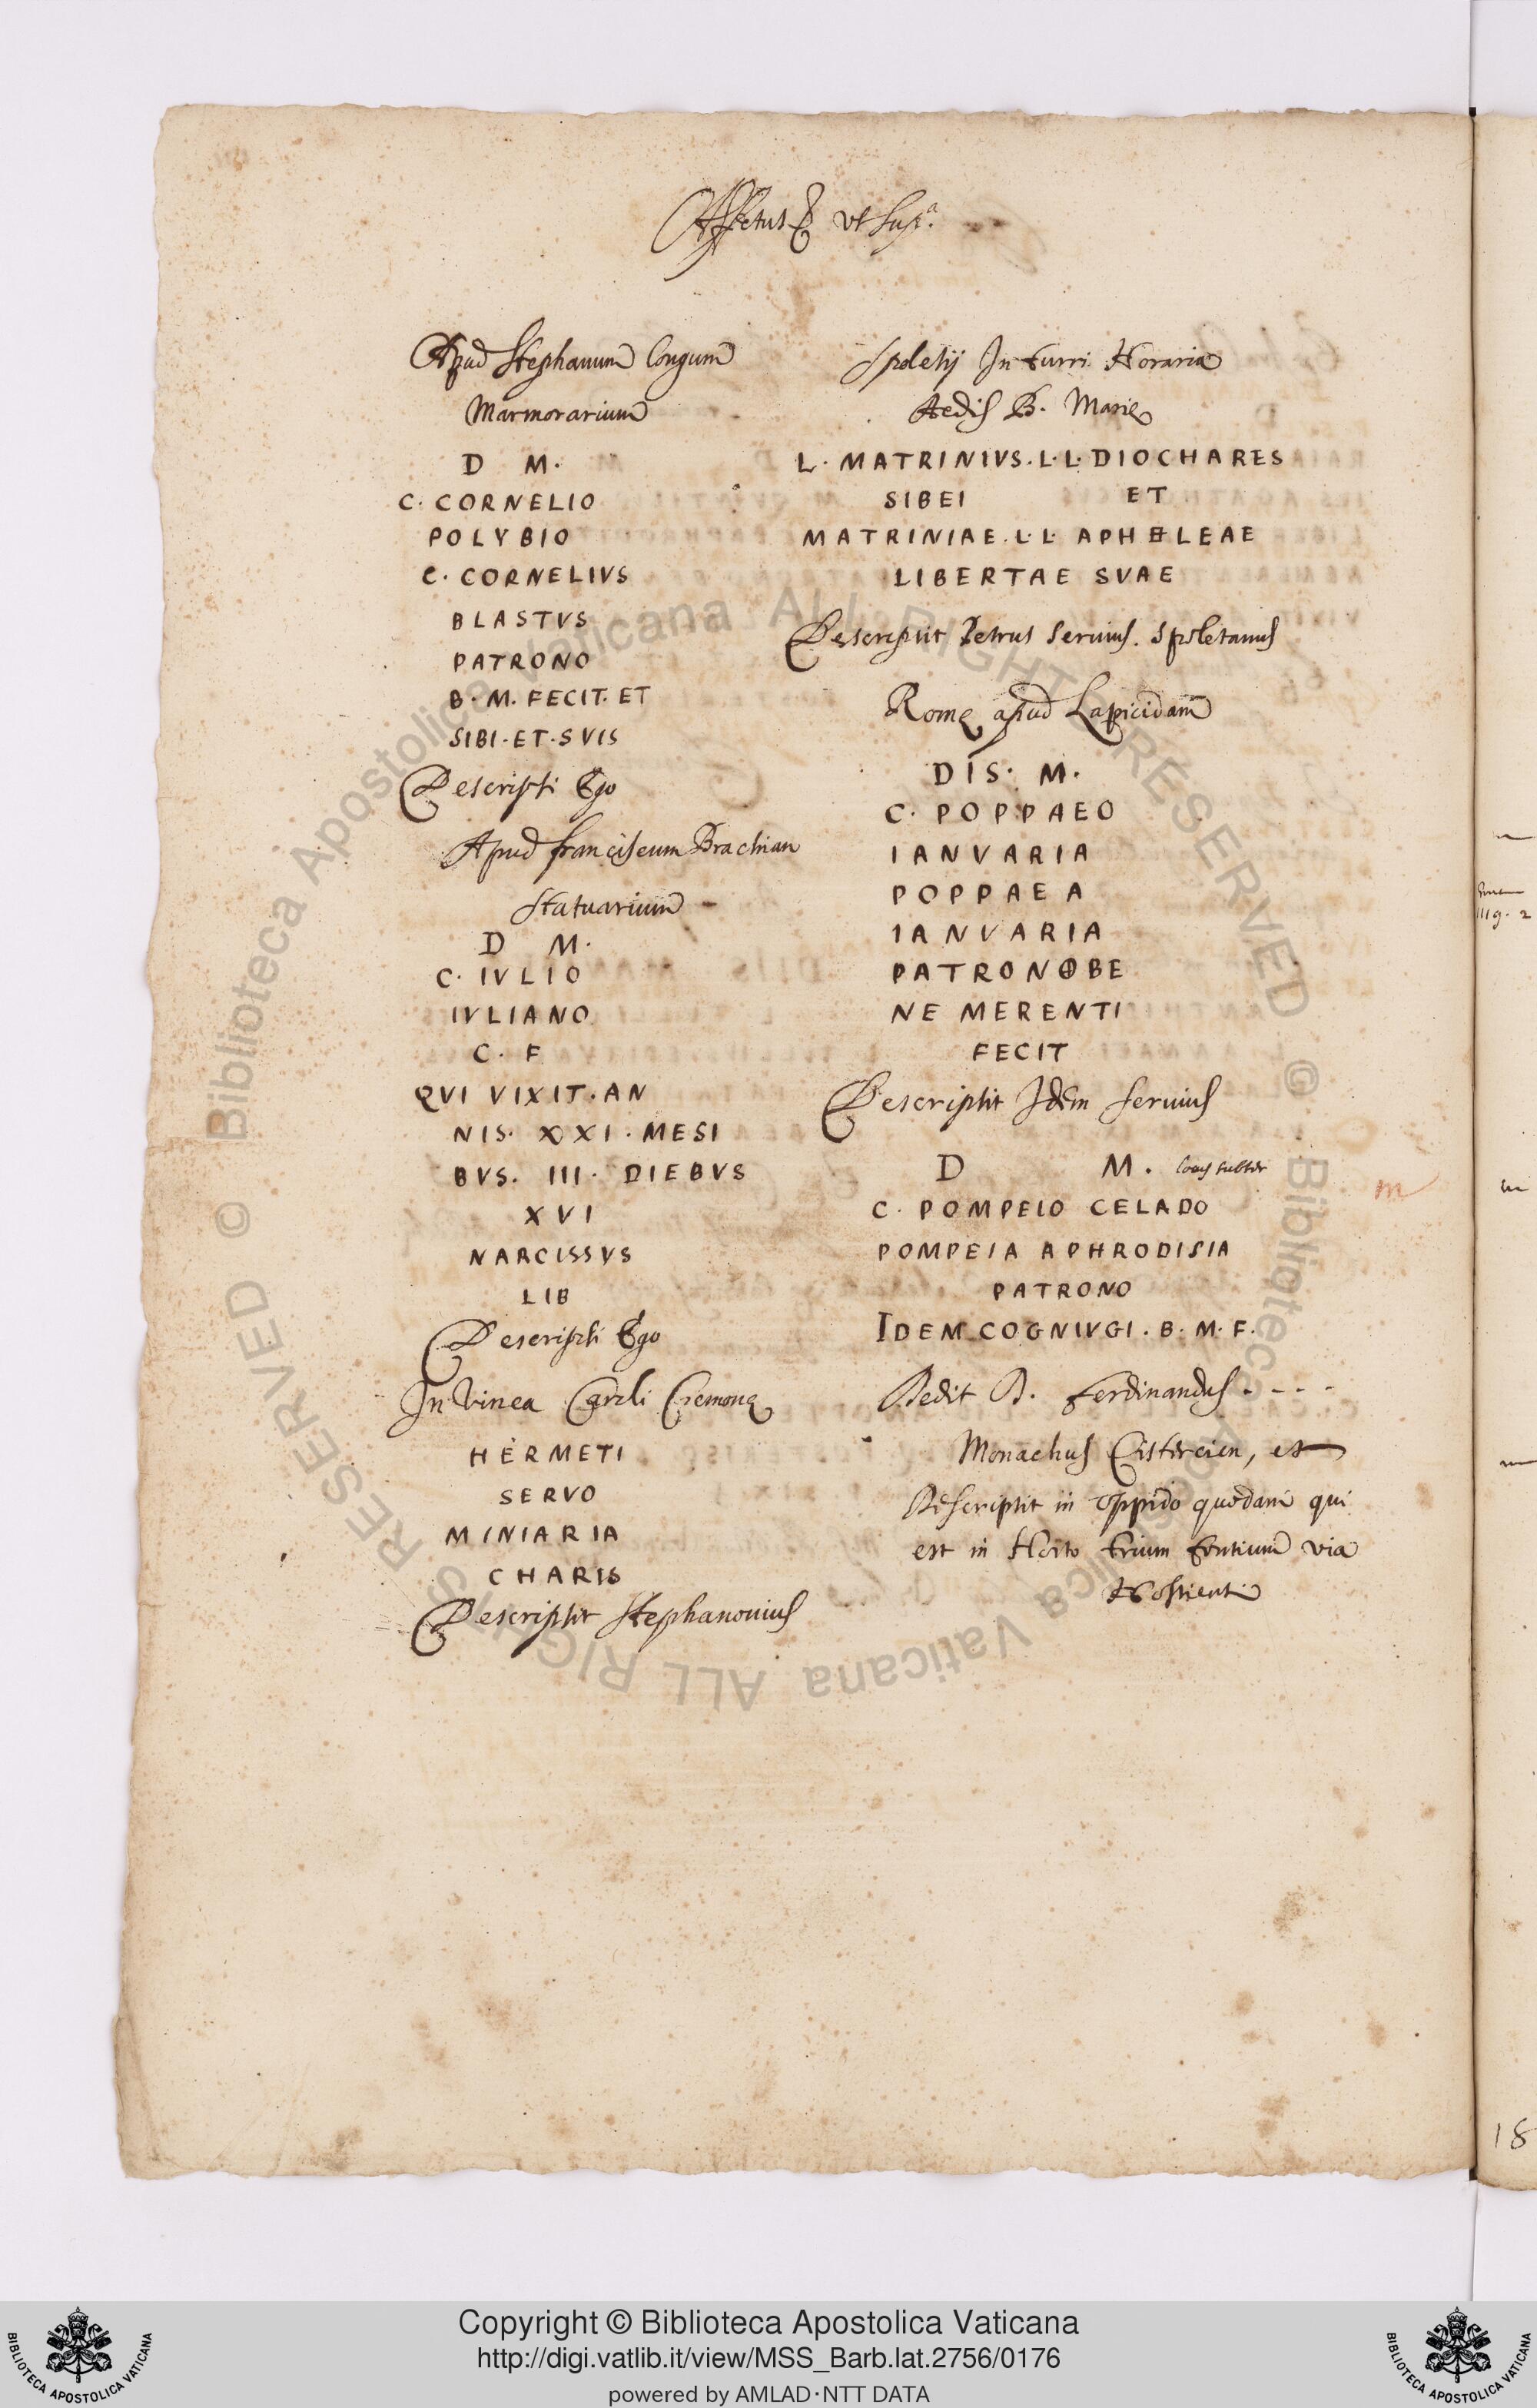 Affetus & vt sup.a
Apud Stephanum Longum
Marmorarium
D M.
C. CORNELIO
POLYBIO
C. CORNELIVS
BLASTVS
PATRONO
B. M. FECIT. ET
SIBI. ET. SVIS
Descripsi Ego
Apud franciscum Brachian
Statuarium
D M.
C. IVLIO
IVLIANO
C. F
QVI VIXIT. AN
NIS. XXI. MESI
BVS. III. DIEBVS
XVI
NARCISSVS
LIB
Descripsi Ego
In Vinea Caroli Cremonę
HERMETI
SERVO
MINIARIA
CHARIS
Descripsit Stephanonius
Spoletij In turri Horaria
Aedis B. Marię
L. MATRINIVS. L. L. DIOCHARES
SIBEI ET
MATRINIAE. L. L. APHELEAE
LIBERTAE SVAE
Descripsit Petrus Seruius. Spoletanus
Romę apud Lapicidam
DIS. M.
C. POPPAEO
IANVARIA
POPPAEA
IANVARIA
PATRONO BE
NE MERENTI
FECIT
Descripsit Idem seruius
D M.
C. POMPEIO CELADO
POMPEIA APHRODISIA
PATRONO
IDEM COGNIVGI. B. M. F.
Dedit D. Ferdinandus. - - -
Monachus Cistercien, et
Descripsit in oppido quodam qui
est in Horto trium fontium via
Hostiensi
m
18
© Biblioteca Apostolica Vaticana ALL RIGHTS RESERVED © Biblioteca Apostolica Vaticana ALL RIGHTS RESERVED
Copyright © Biblioteca Apostolica Vaticana
http://digi.vatlib.it/view/MSS_Barb.lat.2756/0176
powered by AMLAD·NTT DATA
BIBLIOTECA APOSTOLICA VATICANA
BIBLIOTECA APOSTOLICA VATICANA